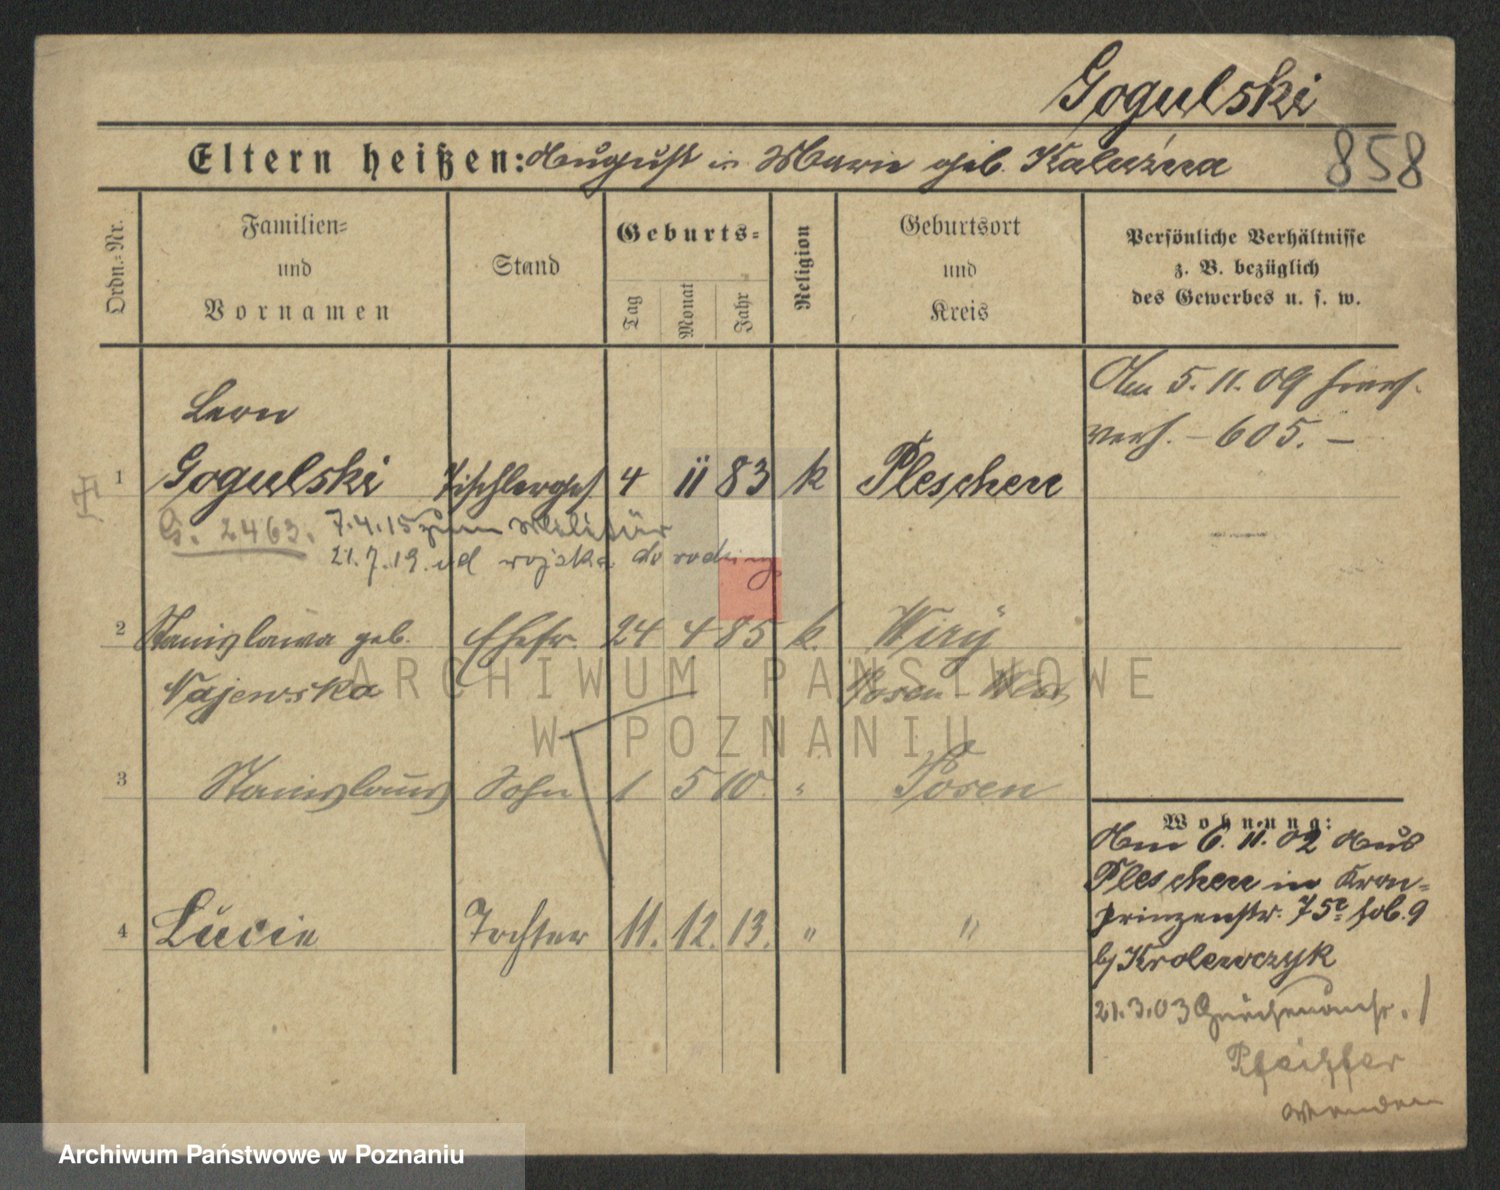 Gogulski
858
Eltern heißen: August u Marie geb. Kaluźna
Ordn.=Nr.
Familien=
und
Vornamen
Stand
Geburts=
Tag
Monat
Jahr
Religion
Geburtsort
und
Kreis
Persönliche Verhältnisse
z. B. bezüglich
des Gewerbes u. s. w.
Am 5. 11. 09 hier
verh. – 605. –
Leon
1 Gogulski Tischlerges 4 11 83 k Pleschen
G. 2463. 7.4.15 zum Militär
21.7.19. od wojska do rodziny
2 Stanislawa geb. Ehefr. 24 4 85 k. Wiry
Najewska Posen West
3 Stanislaus Sohn 1 5 10. " Posen
4 Lucie Tochter 11. 12. 13. " "
Wohnung:
Am 6. 11. 02 aus
Pleschen in Kron=
prinzenstr. 75
b/ Krolewczyk
21.3.03
Pfeiffer
ARCHIWUM PAŃSTWOWE
W POZNANIU
Archiwum Państwowe w Poznaniu